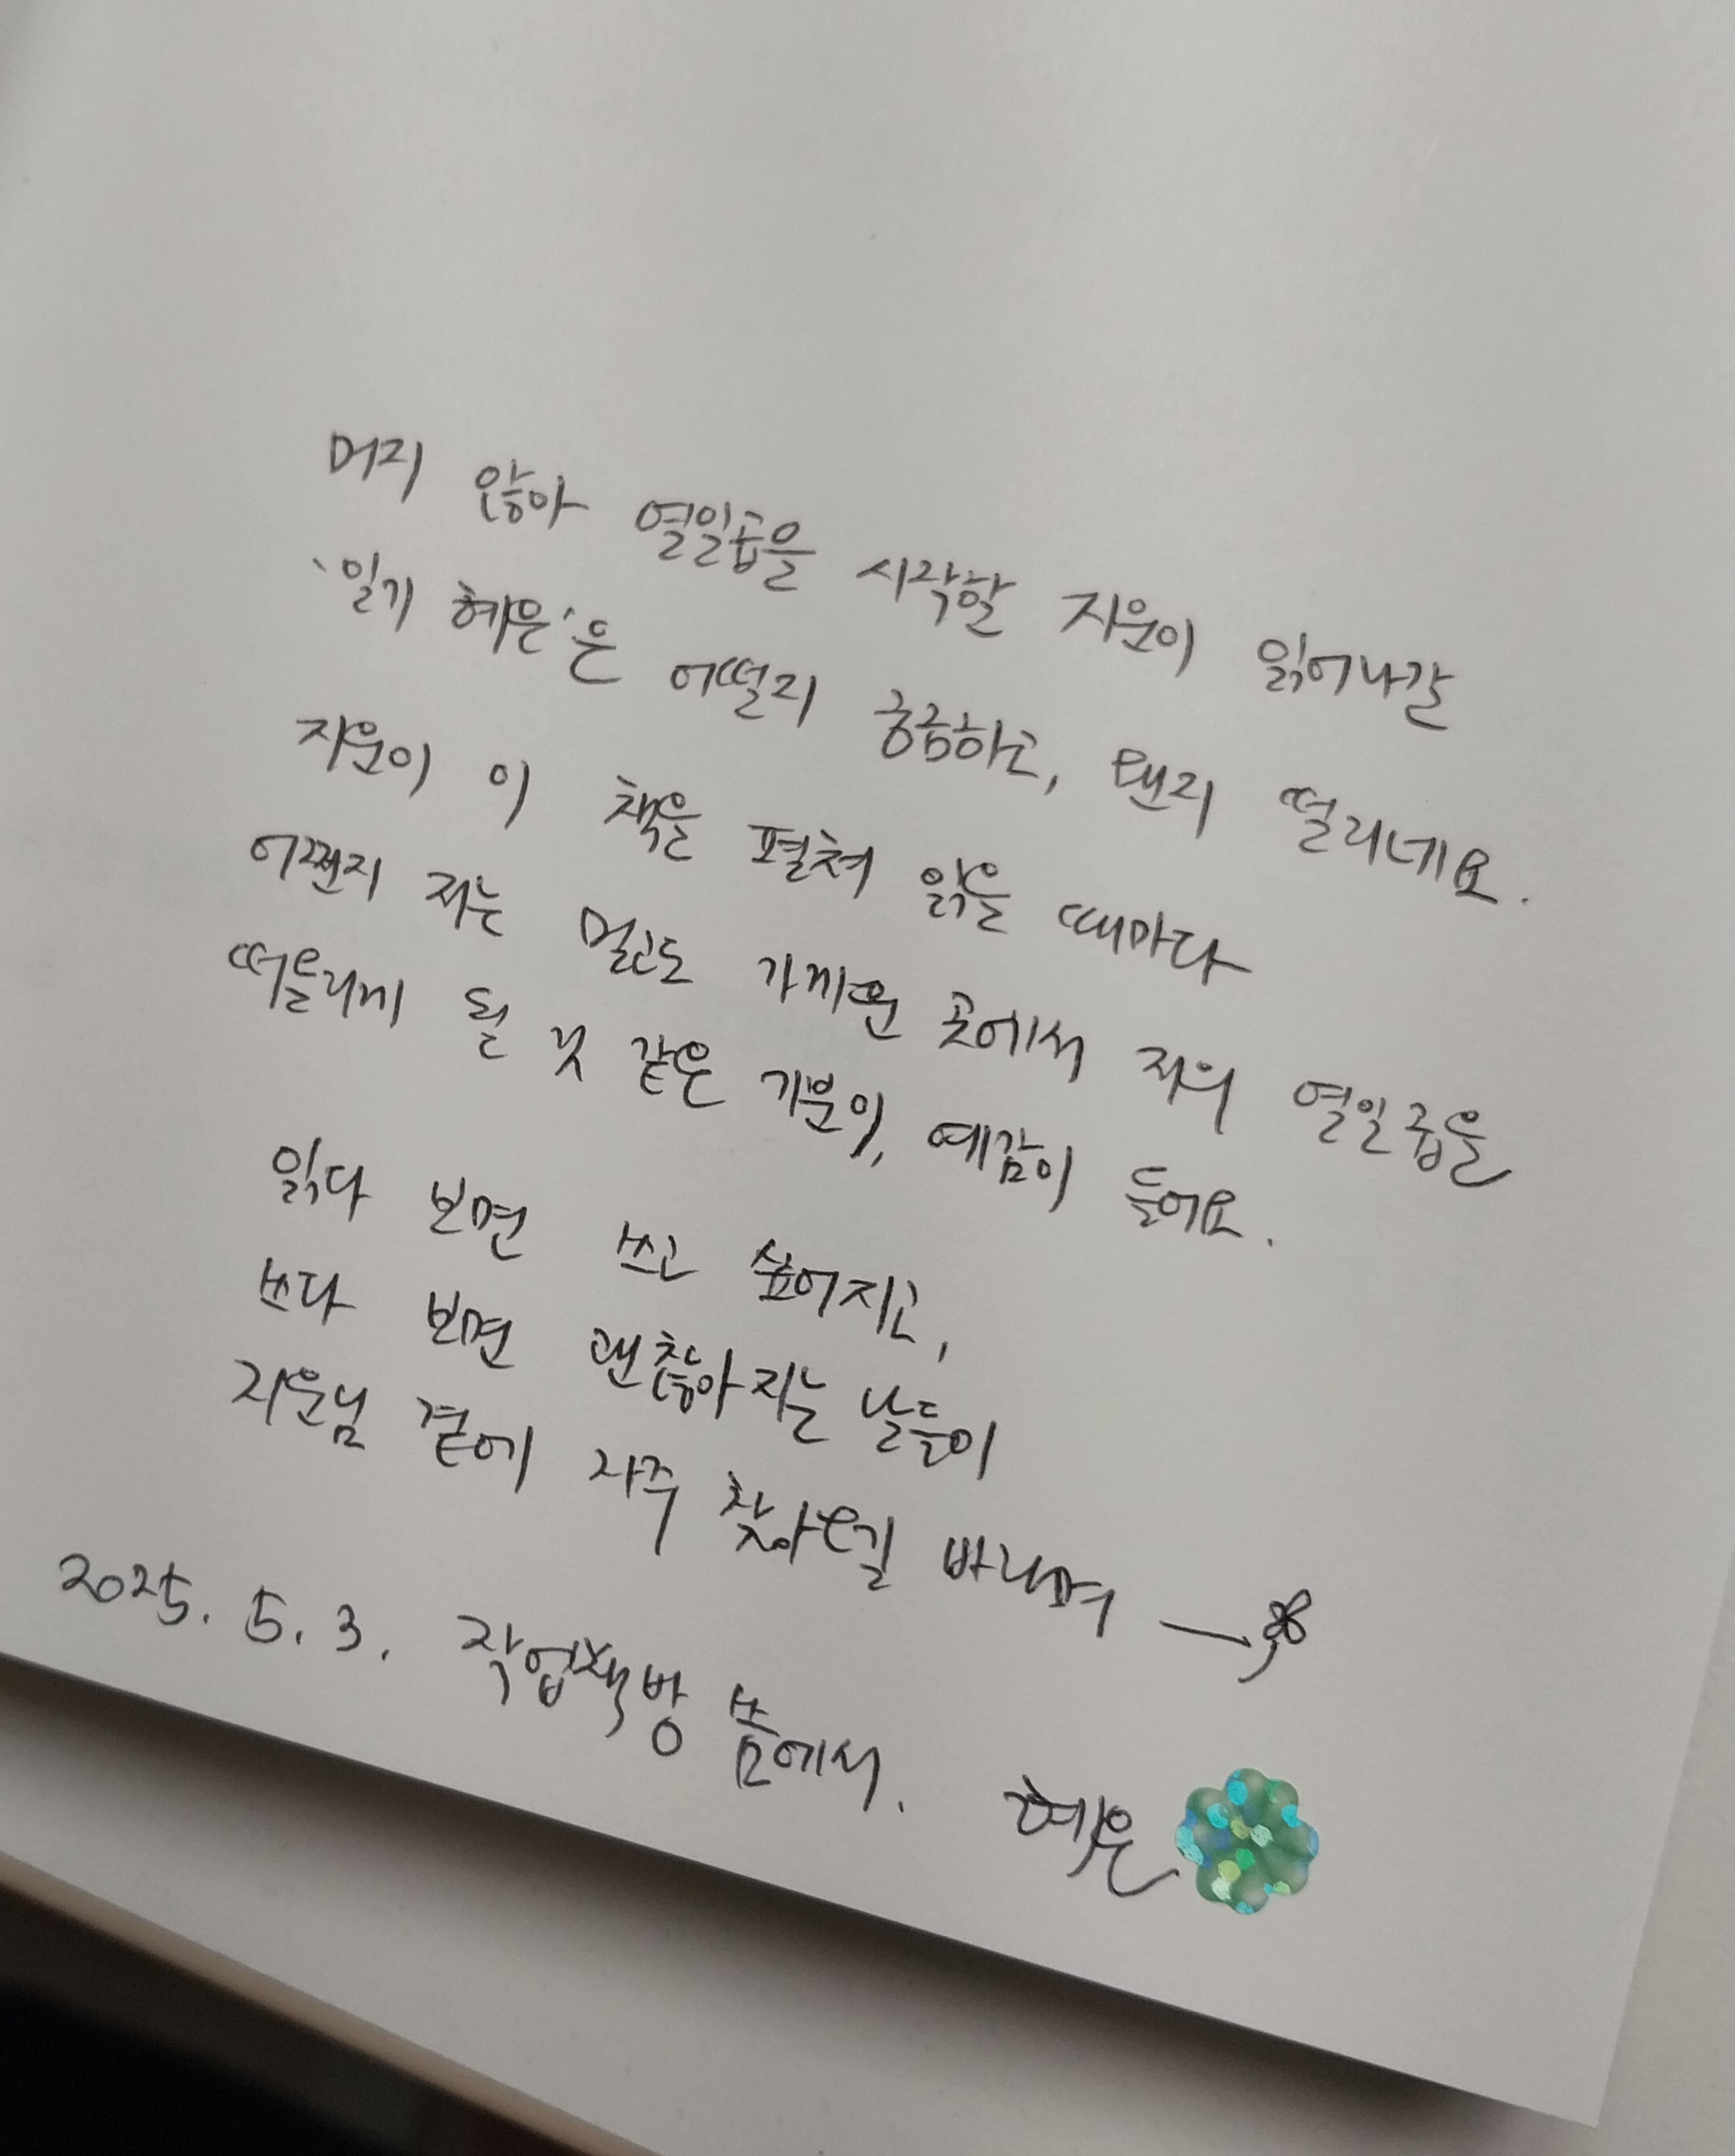 머지 않아 열일곱을 시작할 지윤이 읽어나갈
'일기 혜은'은 어떨지 궁금하고, 왠지 떨리네요.
지윤이 이 책을 펼쳐 읽을 때마다
어쩐지 저는 멀고도 가까운 곳에서 저의 열일곱을
떠올리게 될 것 같은 기분이, 예감이 들어요.
읽다 보면 쓰고 싶어지고,
쓰다 보면 괜찮아지는 날들이
지윤님 곁에 자주 찾아오길 바라며
2025. 5. 3. 작업책방 씀에서. 혜은